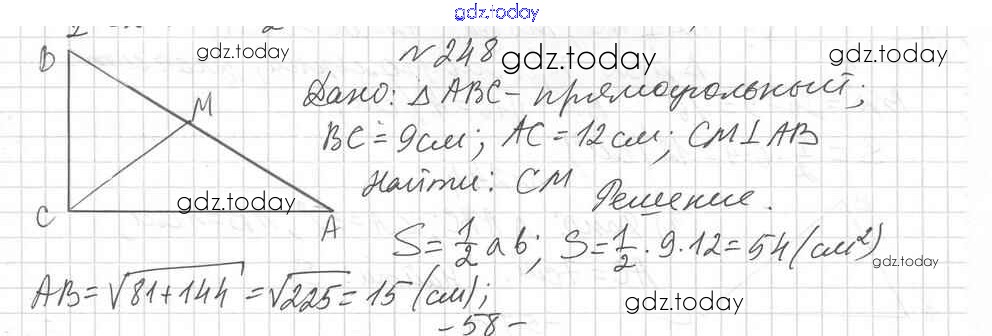 gdz.today
gdz.today
gdz.today
gdz.today
№248
Дано: △ABC - прямоугольный;
BC = 9см; AC = 12см; CM⊥AB
Найти: CM
Решение.
S = 1/2 ab; S = 1/2 · 9 · 12 = 54 (см²)
AB = √81+144 = √225 = 15 (см);
B
M
C
A
gdz.today
gdz.today
gdz.today
- 58 -